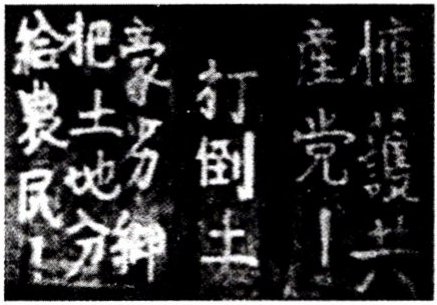 擁護共
産党！
打倒土
豪劣绅
把土地分
给農民！